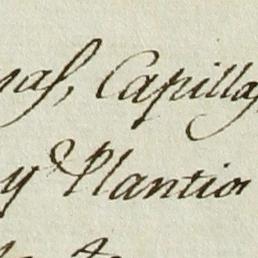 nas, Capillas
y Plantios